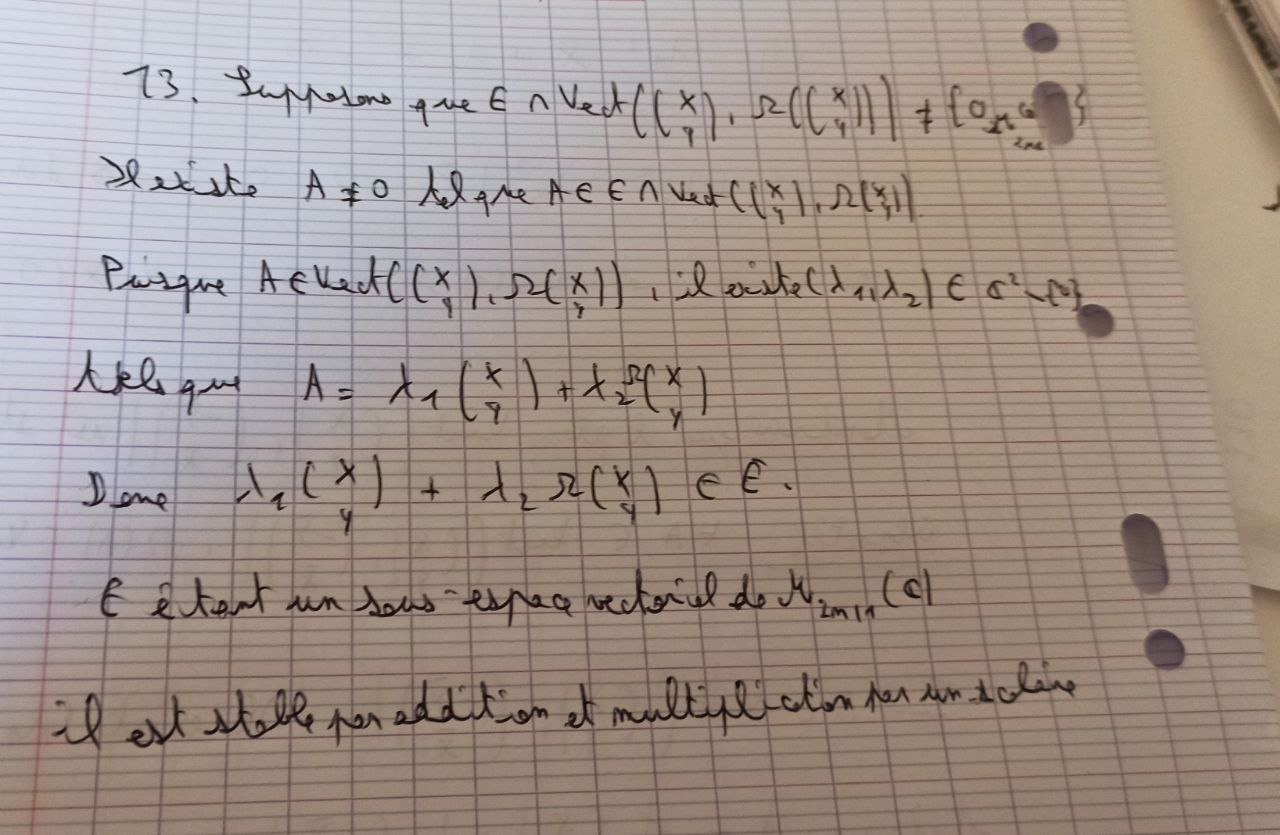 13. Supposons que E ∩ Vect((X Y), Ω((X Y))) ≠ {0
Il existe A ≠ 0 tel que A ∈ E ∩ Vect((X Y), Ω(X Y)).
Puisque A ∈ Vect((X Y), Ω(X Y)), il existe (λ₁, λ₂) ∈ ℂ² \ {0}
tels que A = λ₁ (X Y) + λ₂ Ω(X Y)
Donc λ₁ (X Y) + λ₂ Ω(X Y) ∈ E.
E étant un sous-espace vectoriel de M₂ₙ,₁ (ℂ)
il est stable par addition et multipliction par un scalaire